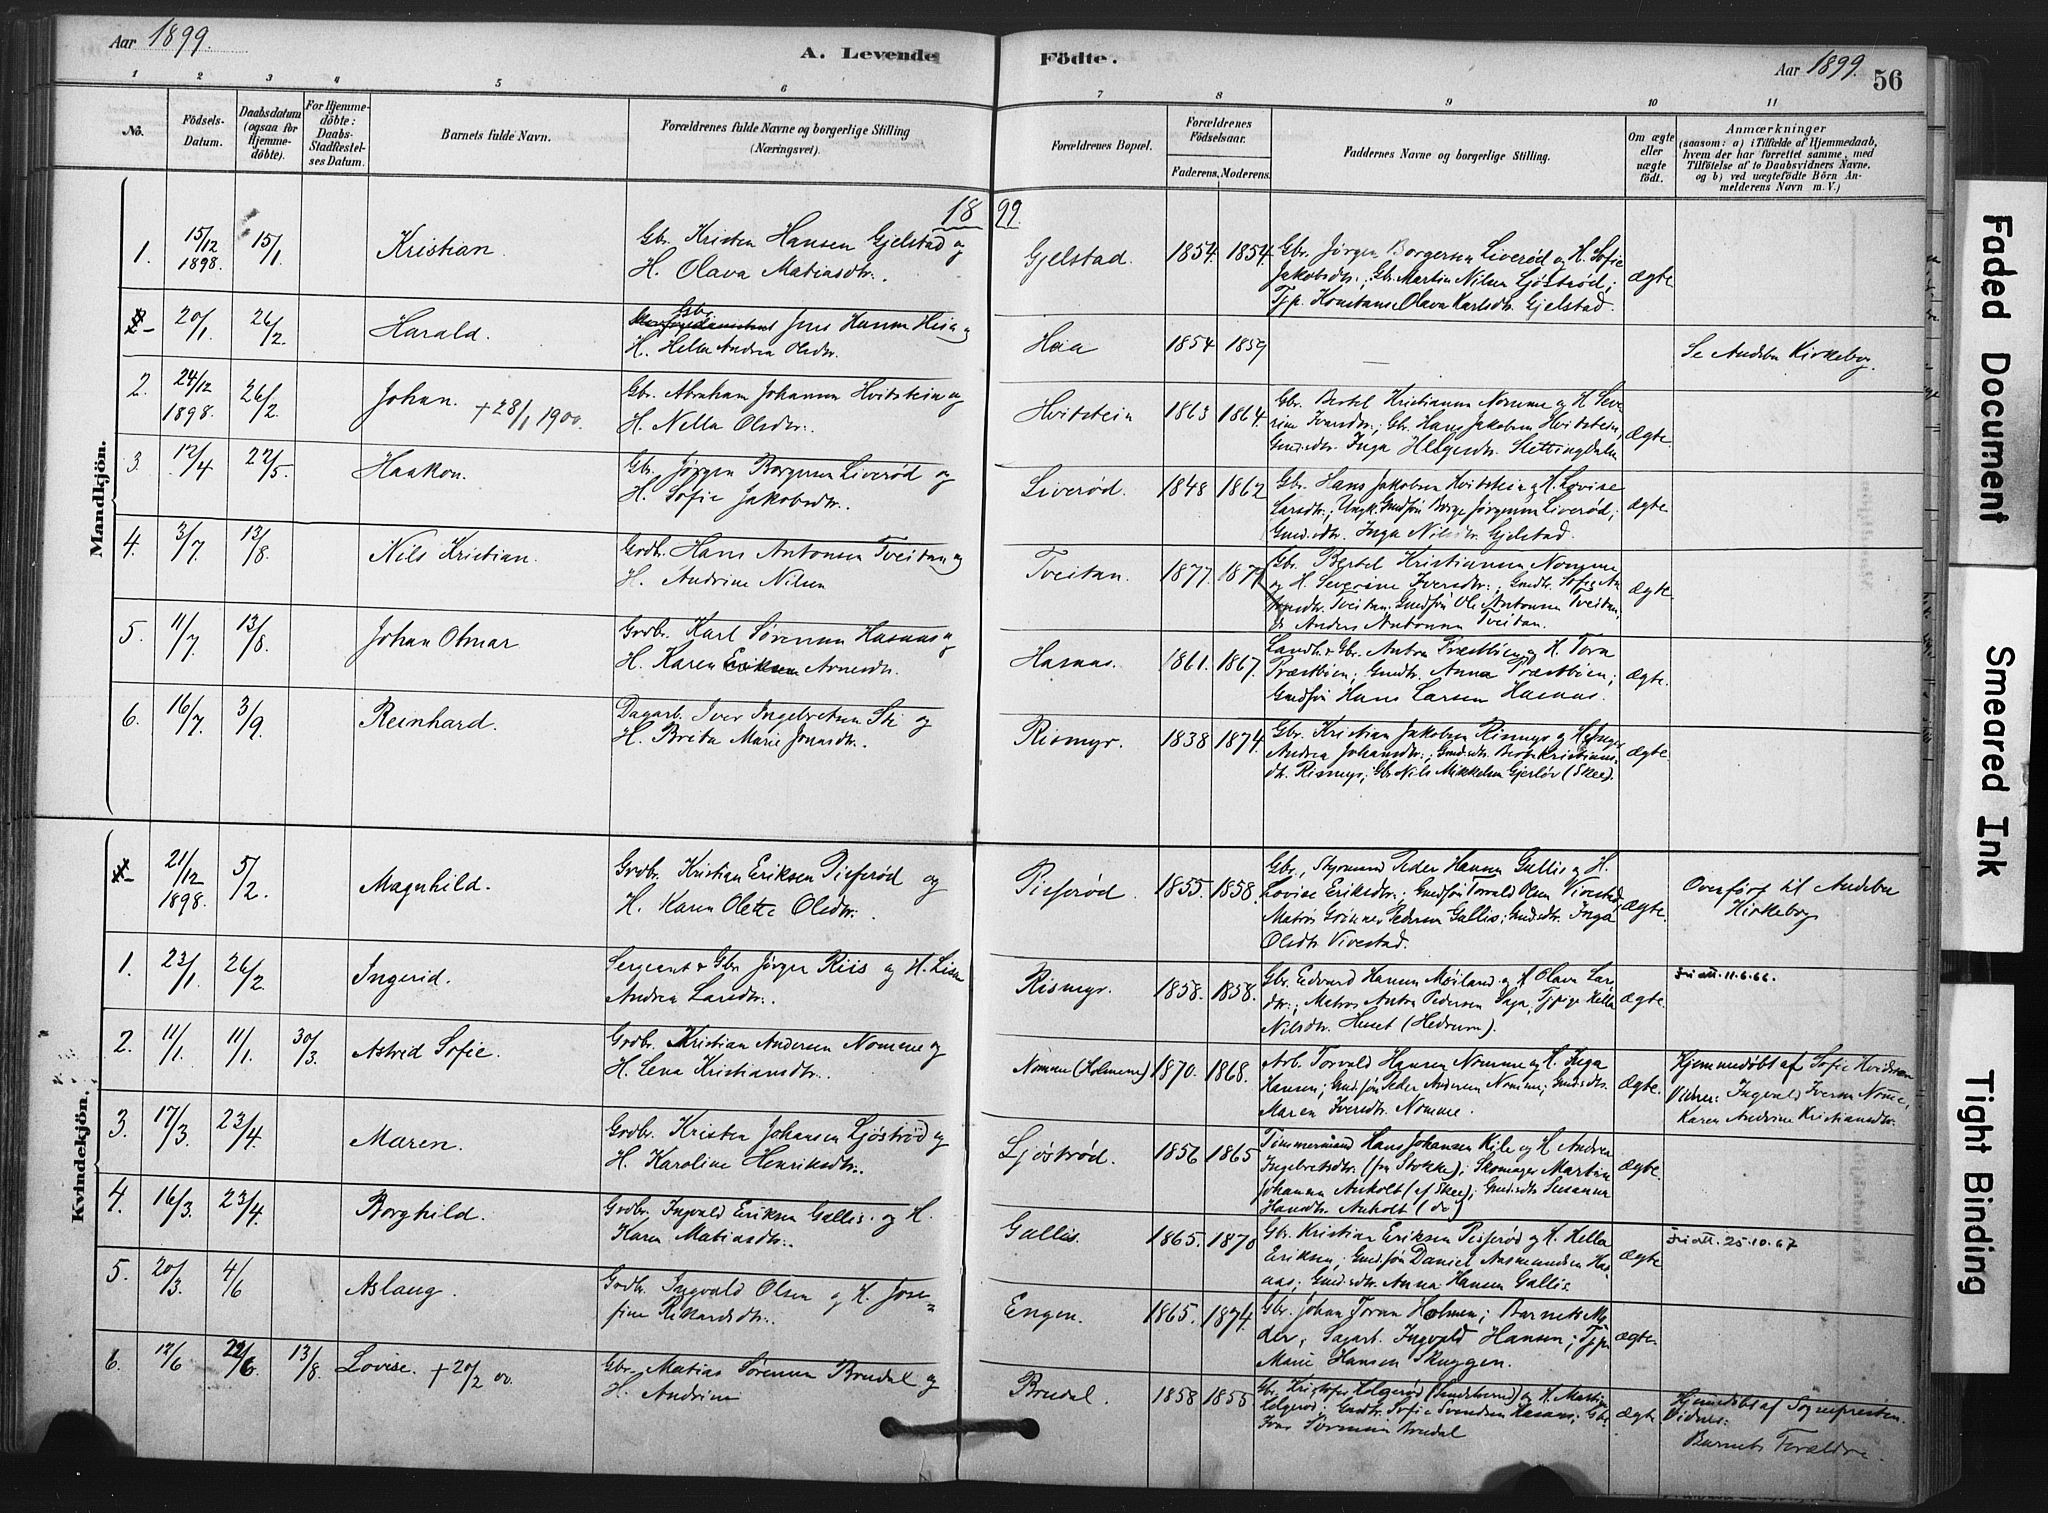 Aar 1899.
A. Levende Födte.
Aar 1899.
56
1 2 3 4 5 6 7 8 9 10 11
No.
Födsels-Datum.
Daabsdatum (ogsaa for Hjemme-döbte).
For Hjemme-döbte: Daabs-Stadfæstel-ses Datum.
Barnets fulde Navn.
Forældrenes fulde Navne og borgerlige Stilling
(Næringsvei).
Forældrenes Bopæl.
Forældrenes Födselsaar.
Faderens. Moderens.
Faddernes Navne og borgerlige Stilling.
Om ægte eller uægte födt.
Anmærkninger
(saasom: a) i Tilfælde af Hjemmedaab,
hvem der har forrettet samme, med
Tilföielse af to Daabsvidners Navne.
og b) ved uægtefödte Börn An-
melderens Navn m. V.)
Mandkjön.
1899.
1. 15/12 1898. 15/1 Kristian.
Gbr. Kristen Hansen Gjelstad og
H. Olava Matiasdtr.
Gjelstad. 1854. 1854.
Gbr. Jørgen Borgersen Liverød og H. Sofie
Jakobsdtr.; Gbr. Martin Nilsen Ljøstrød;
Tjp. Konstanse Olava Karlsdtr. Gjelstad.
ægte
20/1 26/2 Harald.
Gbr. Jens Hansen Heia og
H. Helene Andrea Olsdtr.
Heia 1854 1859 —
Se Andebu Kirkebog.
2. 24/12 1898. 26/2 Johan. +28/1 1900.
Gbr. Abraham Johansen Hvitstein og
H. Nella Olsdtr.
Hvitstein 1863 1864.
Gbr. Bertel Kristiansen Nomme og H. Seve-
rine Iversdtr.; Gbr. Hans Jakobsen Hvitstein,
Gmd.sdtr. Inga Helgesdtr. Slettingdalen
ægte.
3. 12/4 22/5. Haakon.
Gbr. Jørgen Borgersen Liverød og
H. Sofie Jakobsdtr.
Liverød. 1848 1862
Gbr. Hans Jakobsen Hvitstein og H. Lovise
Larsdtr.; Ungk. Gmdsøn Borge Jørgensen Liverød;
Gmd.sdtr. Inga Nilsdtr. Gjelstad.
ægte.
4. 3/7 13/8. Nils Kristian.
Grdbr. Hans Antonsen Tveitan og
H. Andrine Nilsen
Tveitan. 1877. 1877
Gbr. Bertel Kristiansen Nomme
og H. Severine Iversdtr.; Gmdtr. Sofie An-
tonsdtr. Tveitan; Gmdsøn Ole Antonsen Tveitan,
do Anders Antonsen Tveitan.
ægte.
5. 11/7. 13/8. Johan Otmar
Grdbr. Karl Sørensen Hasaas og
H. Karen Eriksen Arnesdtr.
Hasaas. 1861. 1867.
Landh. & Gbr. Anton Præstbøen og H. Tora
Præstbøen; Gmdtr. Anna Præstbøen;
Gmdsøn Hans Larsen Hasaas.
ægte.
6. 16/7. 3/9. Reinhard.
Dagarb. Iver Ingebretsen Sti og
H. Brita Marie Jonasdtr.
Rismyr. 1838 1874.
Gbr. Kristian Jakobsen Rismyr og H. Inger
Andrea Johansdtr.; Gmd.sdtr. Berte Kristians-
dtr. Rismyr; Gbr. Nils Mikkelsen Gjerløv (Skee).
ægte.
Kvindekjön.
21/12 1898. 5/2. Magnhild.
Grdbr. Kristian Eriksen Pisserød og
H. Karen Olette Olsdtr.
Pisserød. 1855. 1858.
Gbr., Styrmand Peder Hansen Gallis og H.
Lovise Eriksdtr.; Gmdsøn Torvald Olsen Vivestad;
Matros Gunner Pedersen Gallis; Gmd.sdtr. Inga
Olsdtr. Vivestad.
ægte.
Overført til Andebu
Kirkebog
1. 23/1 26/2 Ingerid.
Sergeant & Gbr. Jørgen Riis og H. Lise
Andrea Larsdtr.
Rismyr. 1858. 1858.
Gbr. Edvard Hansen Møiland og H. Olava Lars-
dtr.; Matros Anton Pedersen Saga; Tjpige Hella
Nilsdtr. Huset (Hedrum).
ægte.
Fri att. 11.6.66.
2. 11/1. 11/1. 30/3. Astrid Sofie.
Grdbr. Kristian Andersen Nomme og
H. Lena Kristiansdtr.
Nomme (Holmene) 1870. 1868.
Arb. Torvald Hansen Nomme og H. Inga
Hansen; Gmdsøn Peder Andersen Nomme; Gmdsdtr.
Maren Iversdtr. Nomme.
ægte.
Hjemmedøbt af Sofie Hvidsten
Vidner: Ingvald Iversen Nomme,
Karen Andrine Kristiansdtr.
3. 17/3. 23/4. Maren.
Grdbr. Kristen Johansen Ljøstrød og
H. Karoline Henriksdtr.
Ljøstrød. 1856 1865
Timmermand Hans Johansen Kjile og H. Andrea
Ingebretsdtr. (fra Stokke); Skomager Martin
Johansen Askolt (af Skee); Gmd.sdtr. Susanna
Hansdtr. Askolt (do)
ægte.
4. 16/3. 23/4. Borghild.
Grdbr. Ingvald Eriksen Gallis. og H.
Karen Matiasdtr.
Gallis. 1865. 1870
Gbr. Kristian Eriksen Pisserød og H. Hella
Eriksen; Gmdsøn Daniel Aasmundsen Has-
aas; Gmd.sdtr. Anna Hansen Gallis.
ægte
Fri att. 25.10.67
5. 20/3. 4/6 Aslaug.
Grdbr. Ingvald Olsen og H. Jose-
fine Rikardsdtr.
Engen. 1865. 1874.
Gbr. Johan Holmen; Barnets Mo-
der; Sagarb. Ingvald Hansen; Tjp.
Marie Hansen Skuggen.
ægte.
6. 12/6 22/6. 13/8. Lovise. +20/2 00.
Gbr. Matias Sørensen Brudal og
H. Andrine
Brudal. 1858 1855
Gbr. Kristofer Holgerød (Sandeherred) og H. Martine
Holgerød; Gmdtr. Sofie Svendsen Hasaas; Gbr.
Sørensen Brudal
ægte
Hjemdøbt af Sognepresten.
Vidner:
Barnets Forældre.
Faded Document
Smeared Ink
Tight Binding